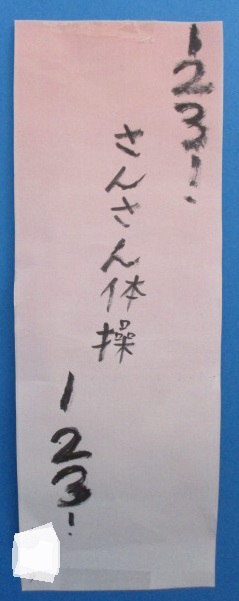 123!
さんさん体操
123!